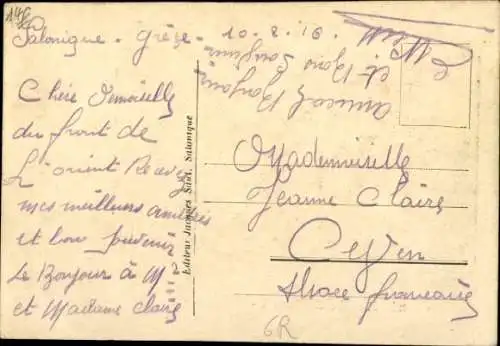 Salonique - Grèce - 10-8-16
Chère Demoiselle
du front de
L'orient Recevez
mes meilleurs amitiés
et bon
Le Bonjour à M
et Madame Claire
amical Bonjour
et Bons
Mademoiselle
Jeanne Claire
Alsace française
Editeur Jacques Saül, Salonique
6R